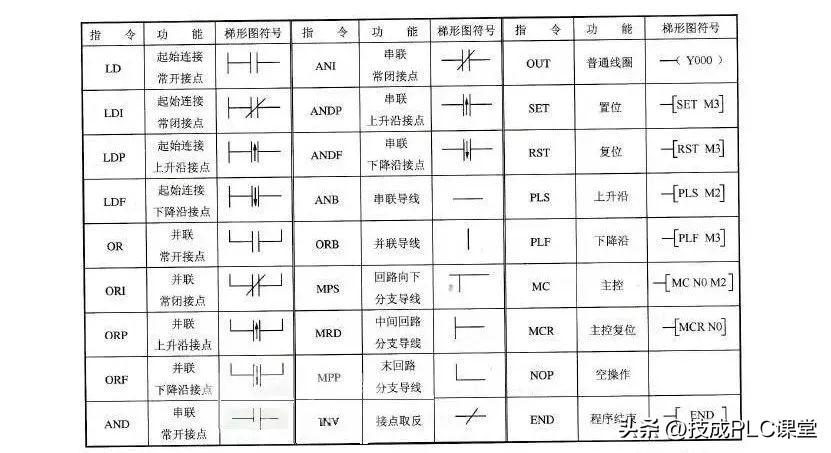 指 令 功 能 梯形图符号 指 令 功 能 梯形图符号 指 令 功 能 梯形图符号
LD 起始连接 常开接点 ANI 串联 常闭接点 OUT 普通线圈 Y000
LDI 起始连接 常闭接点 ANDP 串联 上升沿接点 SET 置位 SET M3
LDP 起始连接 上升沿接点 ANDF 串联 下降沿接点 RST 复位 RST M3
LDF 起始连接 下降沿接点 ANB 串联导线 PLS 上升沿 PLS M2
OR 并联 常开接点 ORB 并联导线 PLF 下降沿 PLF M3
ORI 并联 常闭接点 MPS 回路向下 分支导线 MC 主控 MC N0 M2
ORP 并联 上升沿接点 MRD 中间回路 分支导线 MCR 主控复位 MCR N0
ORF 并联 下降沿接点 MPP 末回路 分支导线 NOP 空操作
AND 串联 常开接点 INV 接点取反 END 程序结束 END
头条 @技成PLC课堂